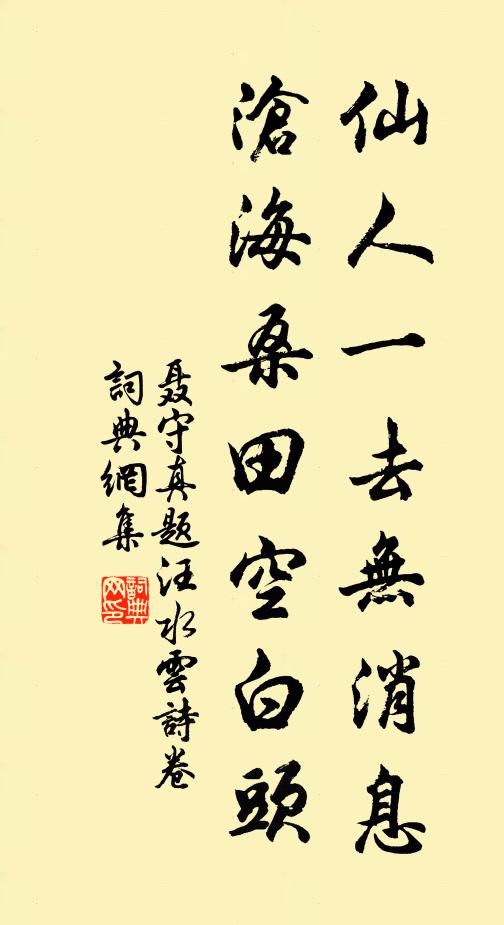 仙人一去無消息
滄海桑田空白頭
聂守真题汪水雲詩卷
詞典網集
詞典网印